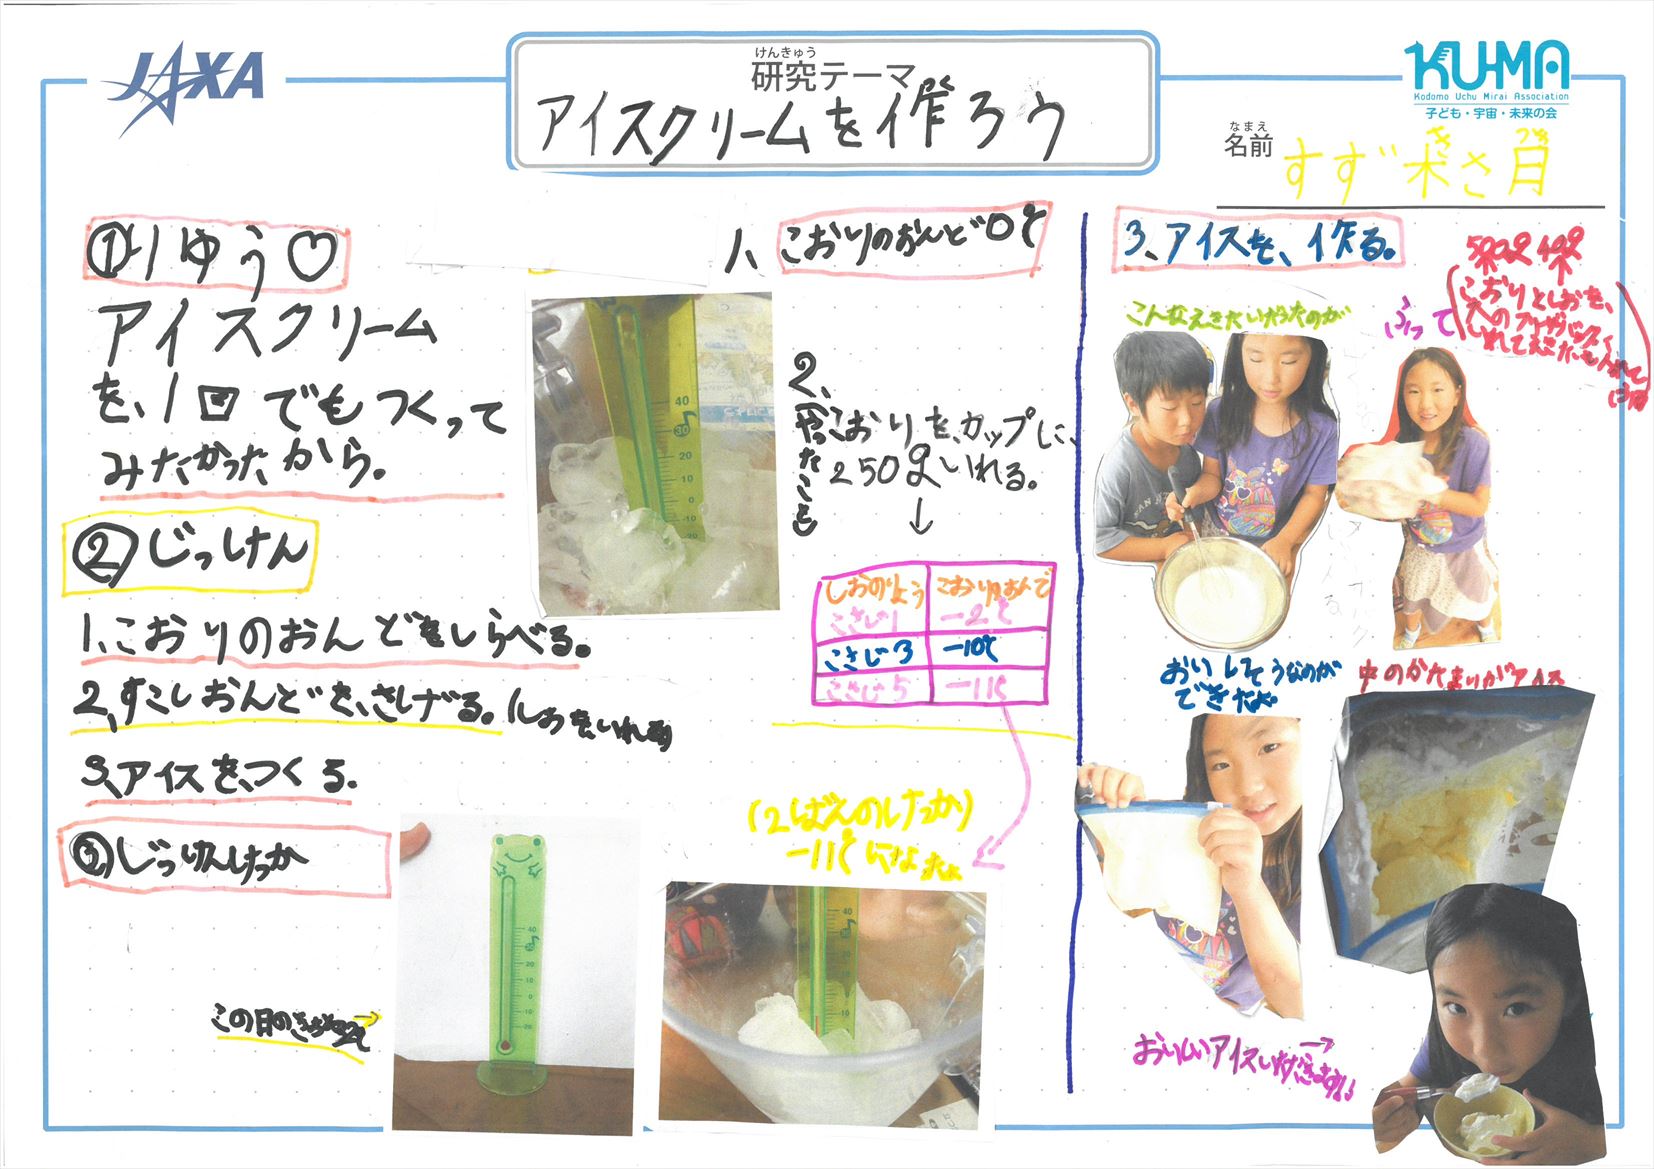 JAXA
けんきゅう
研究テーマ
アイスクリームを作ろウ
KU-MA
Kodomo Uchu Mirai Association
子ども・宇宙・未来の会
なまえ
名前
すず木さ月
①りゆう♡
アイスクリーム
を、1回でもつくって
みたかったから。
②じっけん
1、こおりのおんどをしらべる。
2、すこしおんどを、さげる。(しおをいれる)
3、アイスを、つくる。
③じっけんけっか
この日の
1、こおりのおんど0℃
2、(やったこと)
こおりを、カップに、
250gいれる。
↓
しおのりょう こおりのおんど
こさじ1 -2℃
こさじ3 -10℃
こさじ5 -11℃
(2ばんのけっか)
-11℃になった
3、アイスを、作る。
こんなえきたいだったのが
ふって
こおりとしおを、
おいしそうなのが
できたよ。
中のかたまりがアイス
おいしいアイスいただきます!